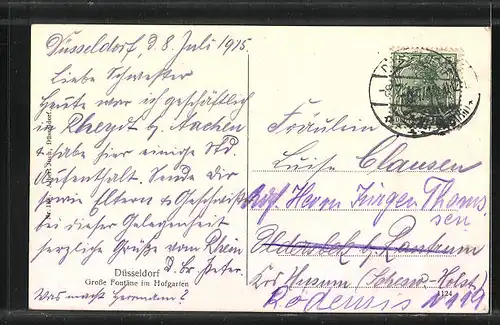 Düsseldorf, d. 8. Juli 1915
Liebe Schwester
Heute war ich geschäftlich
in Rheydt b. Aachen
& habe hier einige Std.
Aufenthalt. Sende dir
sowie Eltern & Geschwister
bei dieser Gelegenheit
herzliche Grüße vom Rhein
d. Br. Peter.
Was macht Hermann?
Düsseldorf
Große Fontäne im Hofgarten
Fräulein
Luise Clausen
Adr. Herrn Jürgen Thoms
sen
Krs Husum (Schlesw-Holst.)
Rödemis